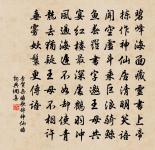 碧峰海面藏靈書上帝
揀作神仙居清明笑語
聞空虛鬥乘巨浪騎鯨
魚春羅書字邀王母共
宴紅樓最深處鶴羽衝
風過海遲不如卻使青
龍去猶疑王母不相許
垂霧妖鬟更傳語